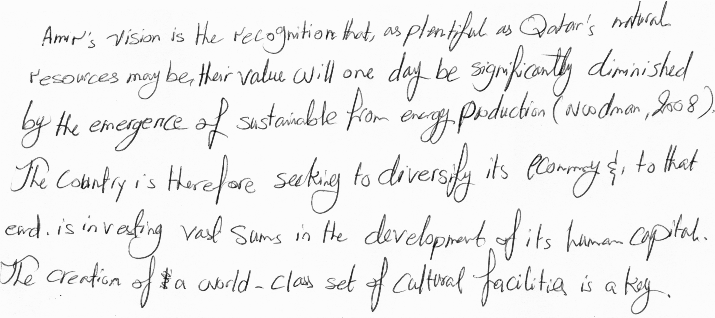 Amir's vision is the recognition that, as plentiful as Qatar's natural
resources may be, their value will one day be significantly diminished
by the emergence of sustainable from energy production (Woodman, 2008).
The Country is therefore seeking to diversify its economy &, to that
end. is investing vast sums in the development of its human capital.
The creation of a world-class set of cultural facilities is a key.